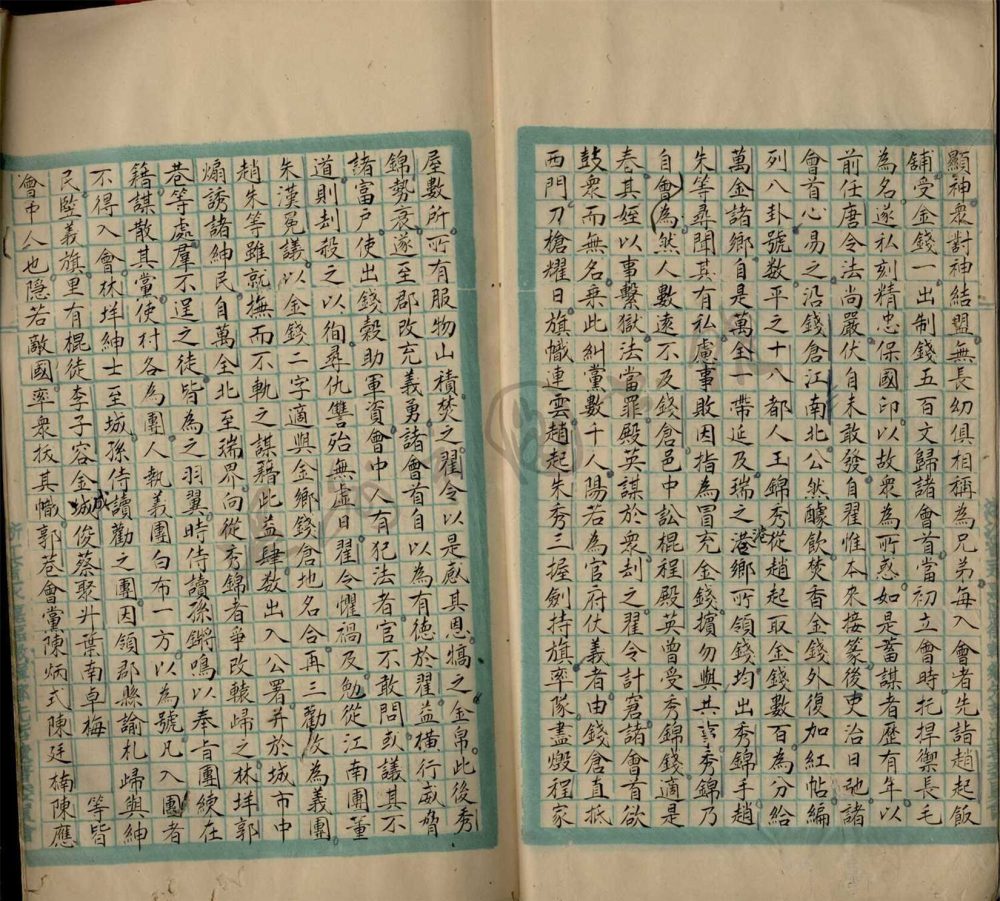 顯神衆對神結盟無長幼俱相稱為兄弟每入會者先詣趙起飯
舖受金錢一出制錢五百文歸諸會首當初立會時托捍禦長毛
為名遂私刻精忠保國印以故衆為所惑如是蓄謀者歷有年以
前任唐令法尚嚴伏自未敢發自翟惟本來接篆後吏治日弛諸
會首心易之沿錢倉江南北公然釀飲焚香金錢外復加紅帖編
列八卦號数平之十八都人王錦秀從趙起取金錢數百為分給
萬全諸鄉自是萬全一帶延及瑞之港鄉所領錢均出秀錦手趙
朱等尋聞其有私慮事敗因指為冒充金錢擯勿與共事秀錦乃
自會為然人數遠不及錢倉邑中訟棍程殿英曾受秀錦錢適是
春其姪以事繫獄法當罪殿英謀於衆刦之翟令計窘諸會有欲
鼓衆而無名乗此糾黨數千人陽若為官府伏義者由錢倉直抵
西門刀槍耀日旗幟連雲趙起朱秀三握劍持旗率隊盡燬程家
屋數所所有服物山積焚之翟令以是感其恩犒之金帛此後秀
錦勢衰遂至郡改充義勇諸會首自以為有德於翟益橫行威脅
諸富户使出錢榖助軍資會中人有犯法者官不敢問或議其不
道則刦殺之以徇尋仇讐殆無虚日翟令懼禍及勉從江南團董
朱漢冕議以金錢二字適與金鄉錢倉地名合再三勸改為義團
趙朱等雖就撫而不軌之謀藉此益肆数出入公署并於城市中
煽誘諸紳民自萬全北至瑞界向從秀錦者爭改轅歸之林垟郭
巷等處羣不逞之徒皆為之羽翼時侍讀孫鏘鳴以奉旨團練在
籍謀散其黨使村各為團人執義團白布一方以為號凡入團者
不得入會林垟紳士至城孫侍讀勸之團因領郡縣諭札歸與紳
民監義旗里有棍徒李子容金城俊蔡聚升葉南卓梅　等皆
會中人也隱若敵國率衆拔其幟郭巷會黨陳炳式陳廷楠陳應